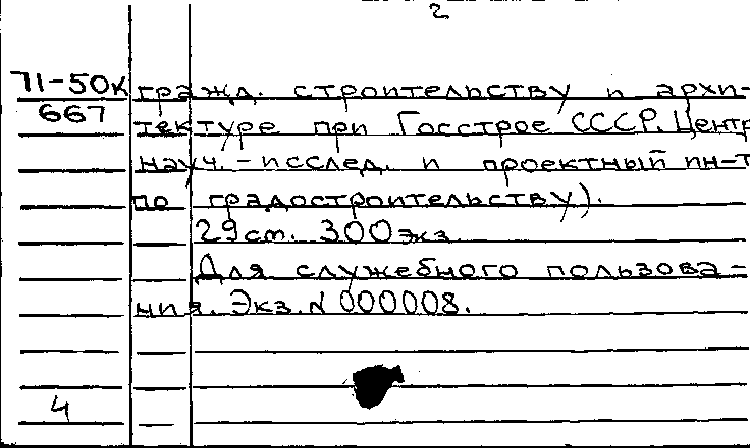 2
71-50к гражд. строительству и архи-
667 тектуре при Госстрое СССР. Центр
науч.-исслед. и проектный ин-т
по градостроительству).
29 см. 300 экз.
Для служебного пользова-
ния. Экз. № 000008.
4